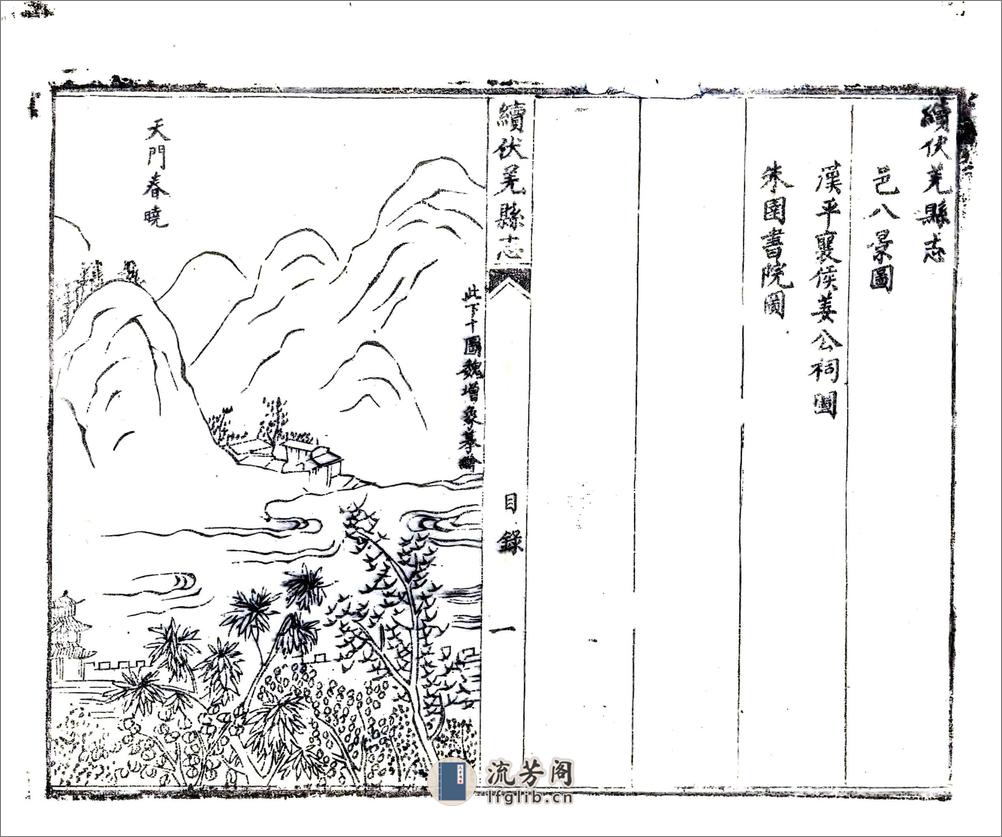 續伏羌縣志
邑八景圖
漢平襄侯姜公祠圖
朱圉書院圖
續伏羌縣志
目錄
一
此下十圖魏增象摹繪
天門春曉
流芳阁
lfglib.cn